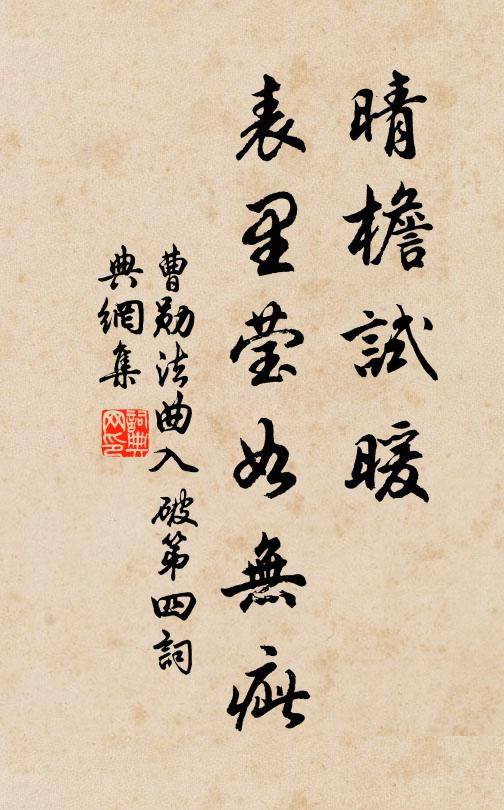 晴檐試暖
表里莹如無疵
曹勋法曲入破第四詞
典網集
詞典网印